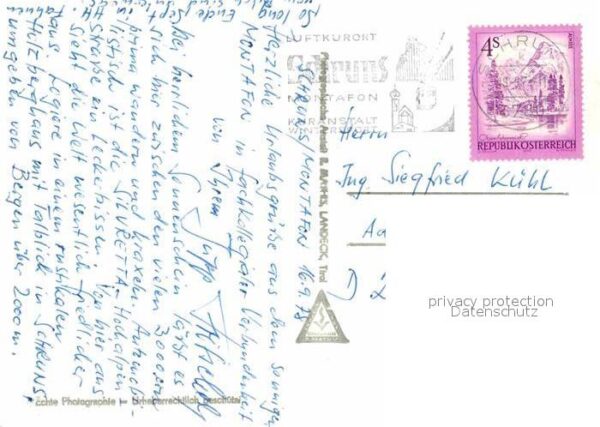 SCHRUNS/MONTAFON 16.9.78
Herzliche Urlaubsgrüße aus dem sonnigen
MONTAFON in fachkollegialer Verbundenheit
von Ihrem Sepp
Bei herrlichem Sonnenschein läßt es
sich hier zwischen den vielen 3000ern
prima wandern und kraxeln. Automobi-
listisch ist die SILVRETTA-Hochalpen
straße ein Leckerbissen. Von hier aus
sieht die Welt wesentlich friedlicher
aus. Logiere in einem rustikalen
Holzberghaus mit Talblick in SCHRUNS,
umgeben von Bergen über 2000 m.
So long Ende Sept. in
LUFTKURORT
Schruns
MONTAFON
KURANSTALT
WINTERSPORT
SCHRUNS
4S
REPUBLIK ÖSTERREICH
Herrn
Ing. Siegfried Kühl
Aa
D 2
LANDECK, Tirol
privacy protection
Datenschutz
Echte Photographie – Urheberrechtlich geschützt